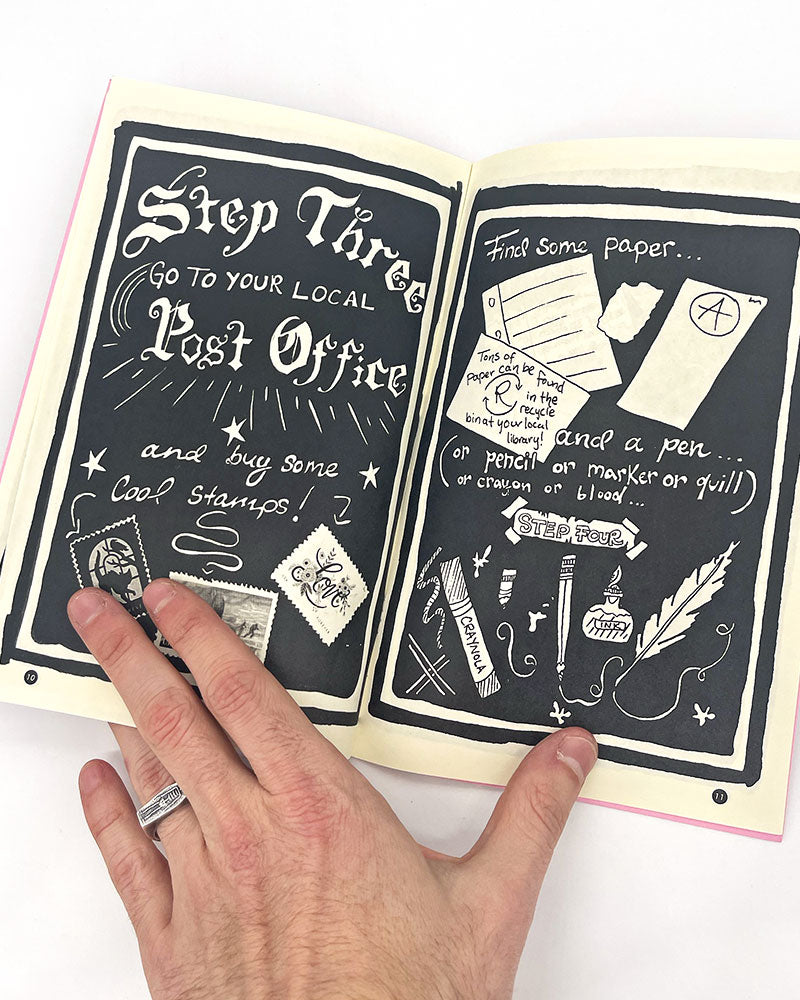 Step Three
GO TO YOUR LOCAL
Post Office
and buy some
Cool Stamps!
Love
10
Find some paper...
A
Tons of
paper can be found
R in the
recycle
bin at your local
library!
and a pen...
(or pencil or marker or quill)
or crayon or blood...
STEP FOUR
CRAYNOLA
INK
11